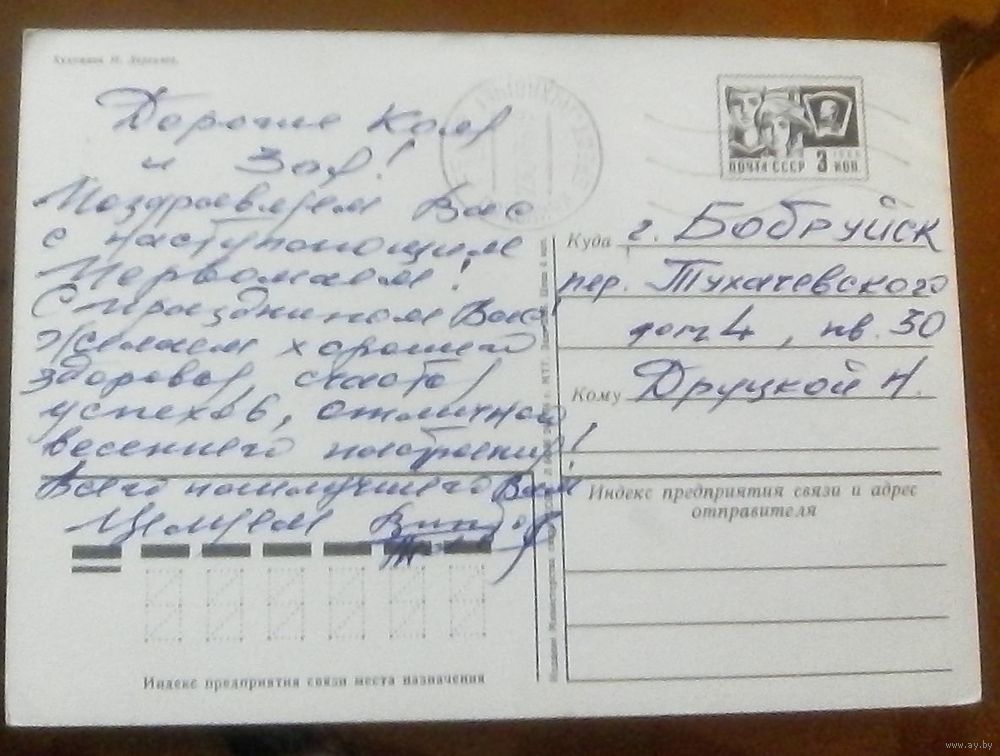 Художник
Дорогие Коля
и Зоя!
Поздравляем Вас
с наступающим
Первомаем!
С праздником Вас!
Желаем хорошего
здоровья, счастья,
успехов, отличного
весеннего настроения!
Всего наилучшего Вам!
Целуем
ПОЧТА СССР 3 КОП
Куда г. Бобруйск
пер. Тухачевского
дом 4, кв. 50
Кому Друцкой Н.
Индекс предприятия связи и адрес
отправителя
Индекс предприятия связи места назначения
www.ay.by